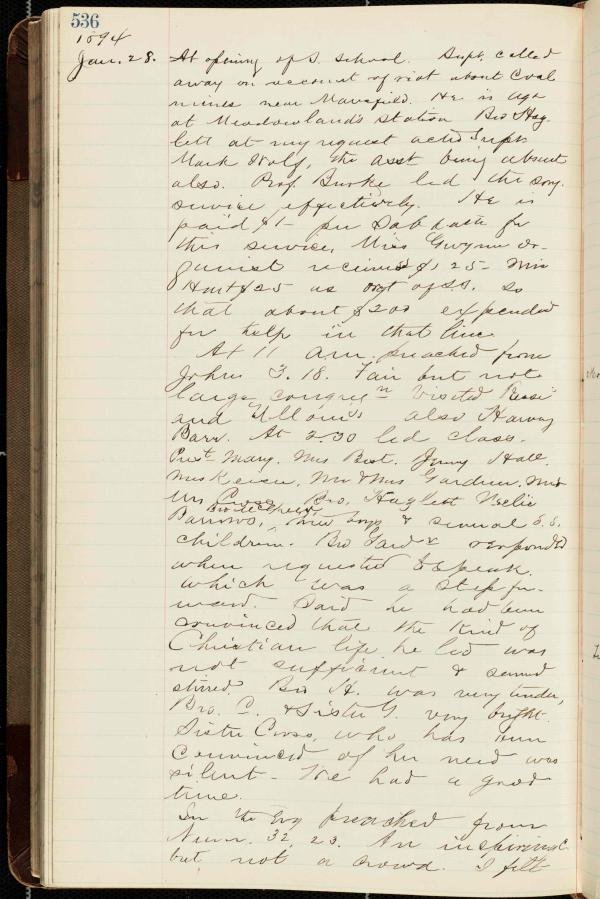 536
1894
Jan. 28. At opening of S. School. Supt. called
away on account of riot about Coal
mines near Mansfield. He is agt
at Meadowlands Station Bro Haz-
lett at my request acted Supt.
Mark Wolf, the asst being absent
also. Prof. Burke led the song
service effectively. He is
paid $1- per Sabbath for
this service, Miss Gwynne or-
ganist receives $1,25- Miss
Hart $25 as orgt of S.S. so
that about $200 expended
for help in that line.
At 11 am. preached from
Johns 3.18. Fair but not
large congregn Visited
and also Harvey
Barr. At 2.30 led class.
Prest Mary. Mrs Best. Jenny Hall.
Mr & Mrs Gardner. Mr &
Mrs Cross Bro. Hazlett Nellie
Barrows, three boys & several S.S.
children. Bro Gard responded
when requested to speak.
which was a step for-
ward. Said he had been
convinced that the kind of
Christian life he led was
not sufficient & seemed
stirred. Bro H. was very tender,
Bro. C. & Sister G. very bright.
Sister Cross, who has been
convinced of her need was
silent - We had a good
time.
In the evg preached from
Num. 32. 23. An inspiring c.
but not a crowd. I felt